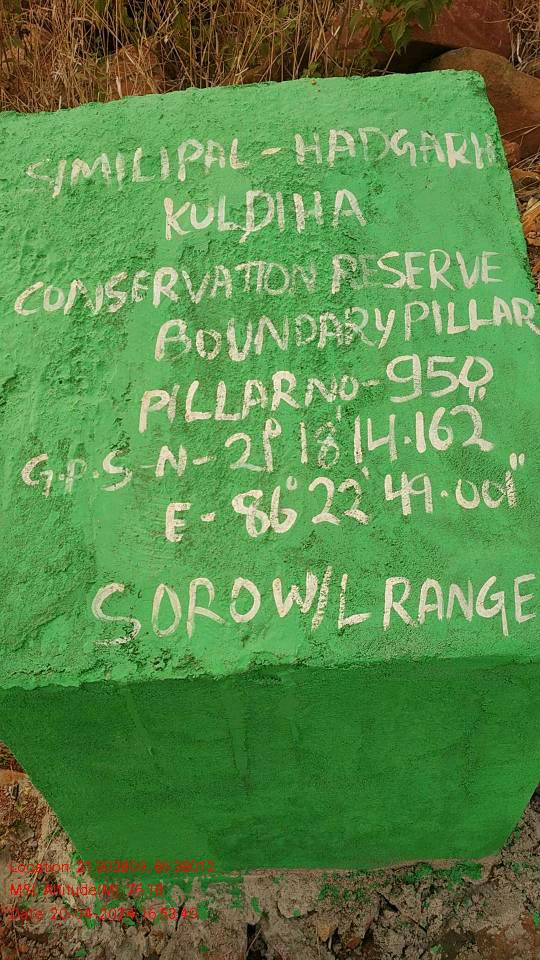 SIMILIPAL - HADGARH
KULDIHA
CONSERVATION RESERVE
BOUNDARY PILLAR
PILLAR NO- 950
G.P.S -N- 21° 18' 14.162"
E - 86° 22' 49.001"
SORO W/L RANGE
Location: 21.303809, 86.38012
MSL Altitude(M):
Date: 20-04-2024 16:53:45